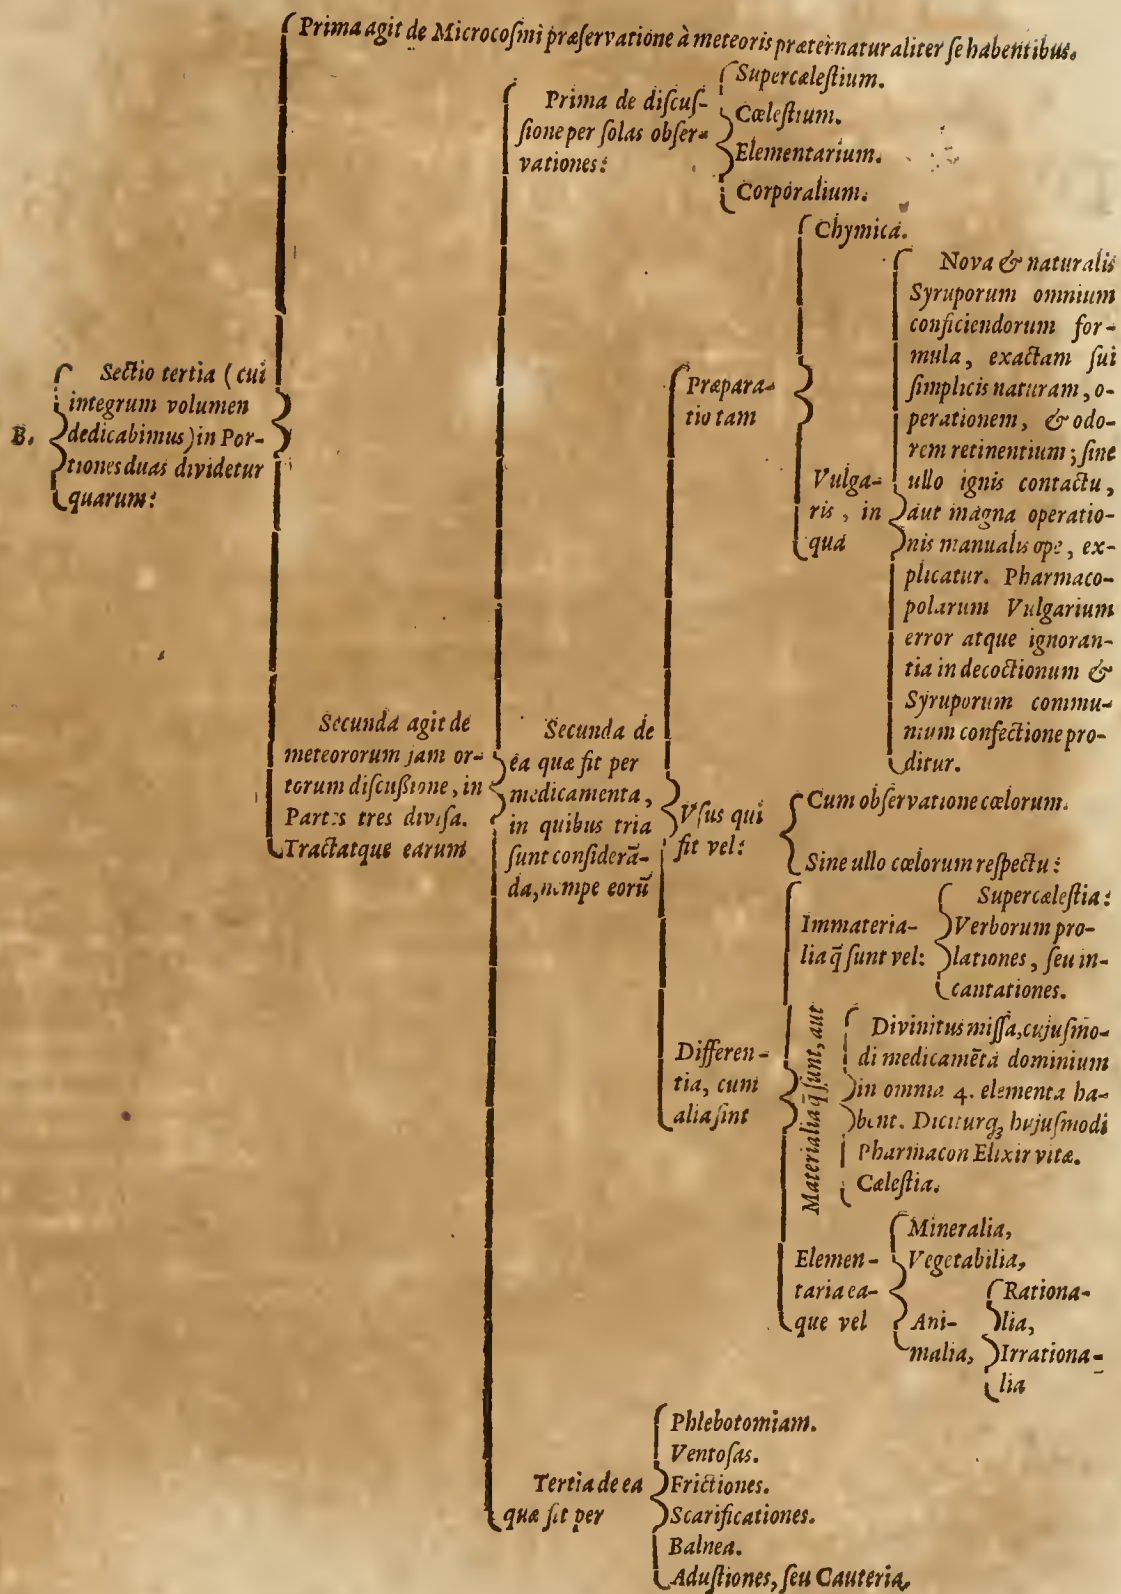 Prima agit de Microcoſmi præſervatione à meteoris præternaturaliter ſe habentibus.
B.
Sectio tertia (cui
integrum volumen
dedicabimus) in Por-
tiones duas dividetur
quarum:
Secunda agit de
meteororum jam or-
torum diſcuſsione, in
Partes tres diviſa.
Tractatque earum
Prima de diſcuſ-
ſione per ſolas obſer-
vationes:
Supercæleſtium.
Cœleſtium.
Elementarium.
Corporalium.
Secunda de
ea quæ fit per
medicamenta,
in quibus tria
ſunt conſiderā-
da, nempe eorũ
Præpara-
tio tam
Chymica.
Vulga-
ris, in
qua
Nova & naturalis
Syruporum omnium
conficiendorum for-
mula, exactam ſui
ſimplicis naturam, o-
perationem, & odo-
rem retinentium; ſine
ullo ignis contactu,
aut magna operatio-
nis manualis ope, ex-
plicatur. Pharmaco-
polarum Vulgarium
error atque ignoran-
tia in decoctionum &
Syruporum commu-
nium confectione pro-
ditur.
Vſus qui
fit vel:
Cum obſervatione cœlorum.
Sine ullo cœlorum reſpectu:
Differen-
tia, cum
alia ſint
Immateria-
lia q̄ ſunt vel:
Supercæleſtia:
Verborum pro-
lationes, ſeu in-
cantationes.
Materialia q̄ ſunt, aut
Divinitus miſſa, cujuſmo-
di medicamēta dominium
in omnia 4. elementa ha-
bent. Diciturq; hujuſmodi
Pharmacon Elixir vitæ.
Cæleſtia.
Elemen-
taria ea-
que vel
Mineralia,
Vegetabilia,
Ani-
malia,
Rationa-
lia,
Irrationa-
lia
Tertia de ea
quæ fit per
Phlebotomiam.
Ventoſas.
Frictiones.
Scarificationes.
Balnea.
Aduſtiones, ſeu Cauteria,